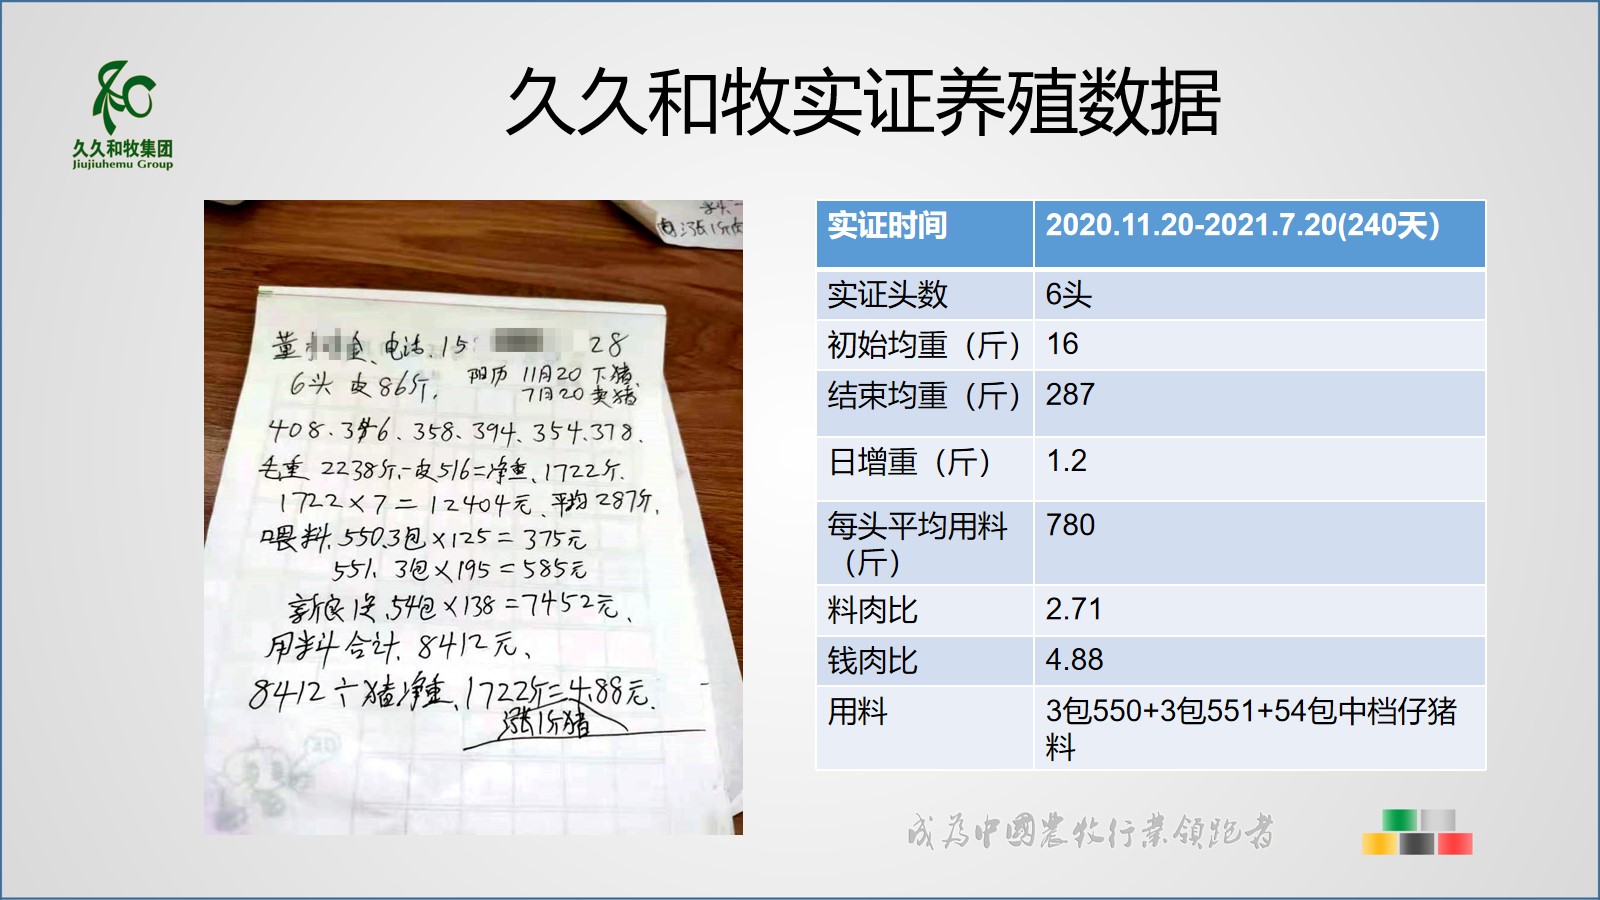 久久和牧集团
Jiujiuhemu Group
久久和牧实证养殖数据
涨1斤肉
董 金、电话.15 28
6头 皮86斤, 阳历 11月20 下猪.
7月20 卖猪
408、346、358、394、354.378.
毛重 2238斤-皮516=净重、1722斤.
1722×7=12404元、平均287斤.
喂料.550.3包×125=375元
551. 3包×195=585元
54包×138=7452元、
用料合计.8412元、
8412÷猪净重、1722斤=4.88元.
涨1斤猪
实证时间 2020.11.20-2021.7.20(240天）
实证头数 6头
初始均重（斤） 16
结束均重（斤） 287
日增重（斤） 1.2
每头平均用料 780
（斤）
料肉比 2.71
钱肉比 4.88
用料 3包550+3包551+54包中档仔猪
料
成為中國農牧行業領跑者